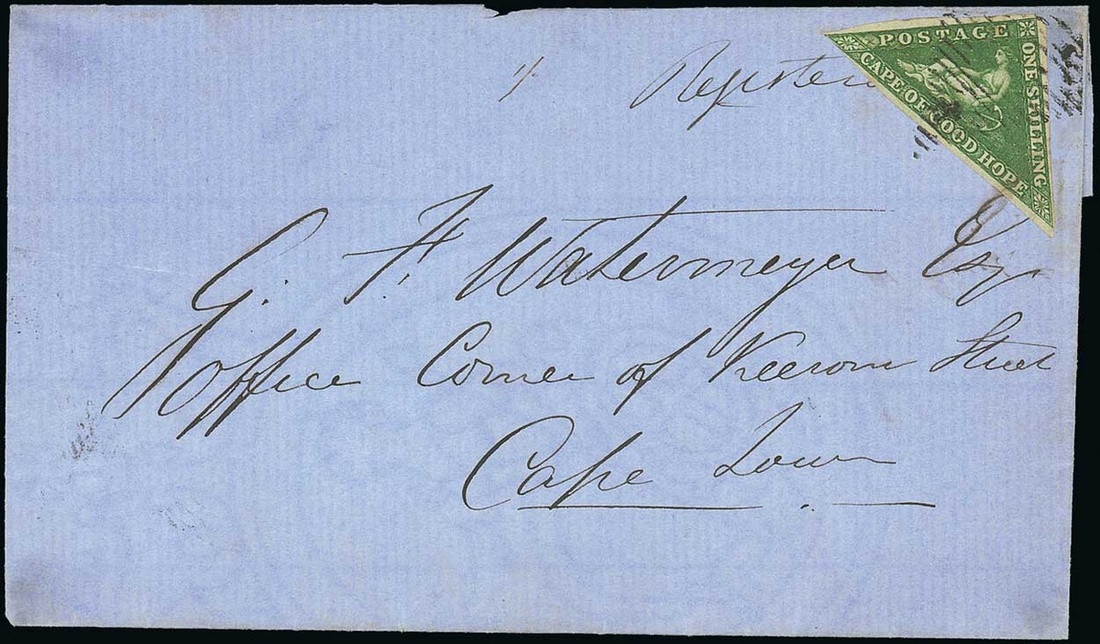 1/ Registered
POSTAGE
ONE SHILLING
CAPE OF GOOD HOPE
G. F. Watermeyer Esqr
Office Corner of Keerom Street
Cape Town